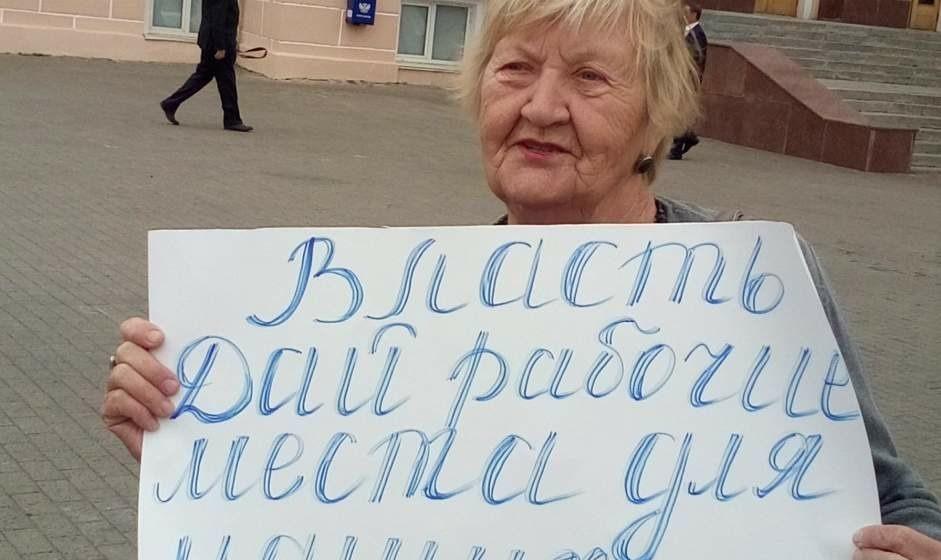 Власть
Дай рабочие
места для